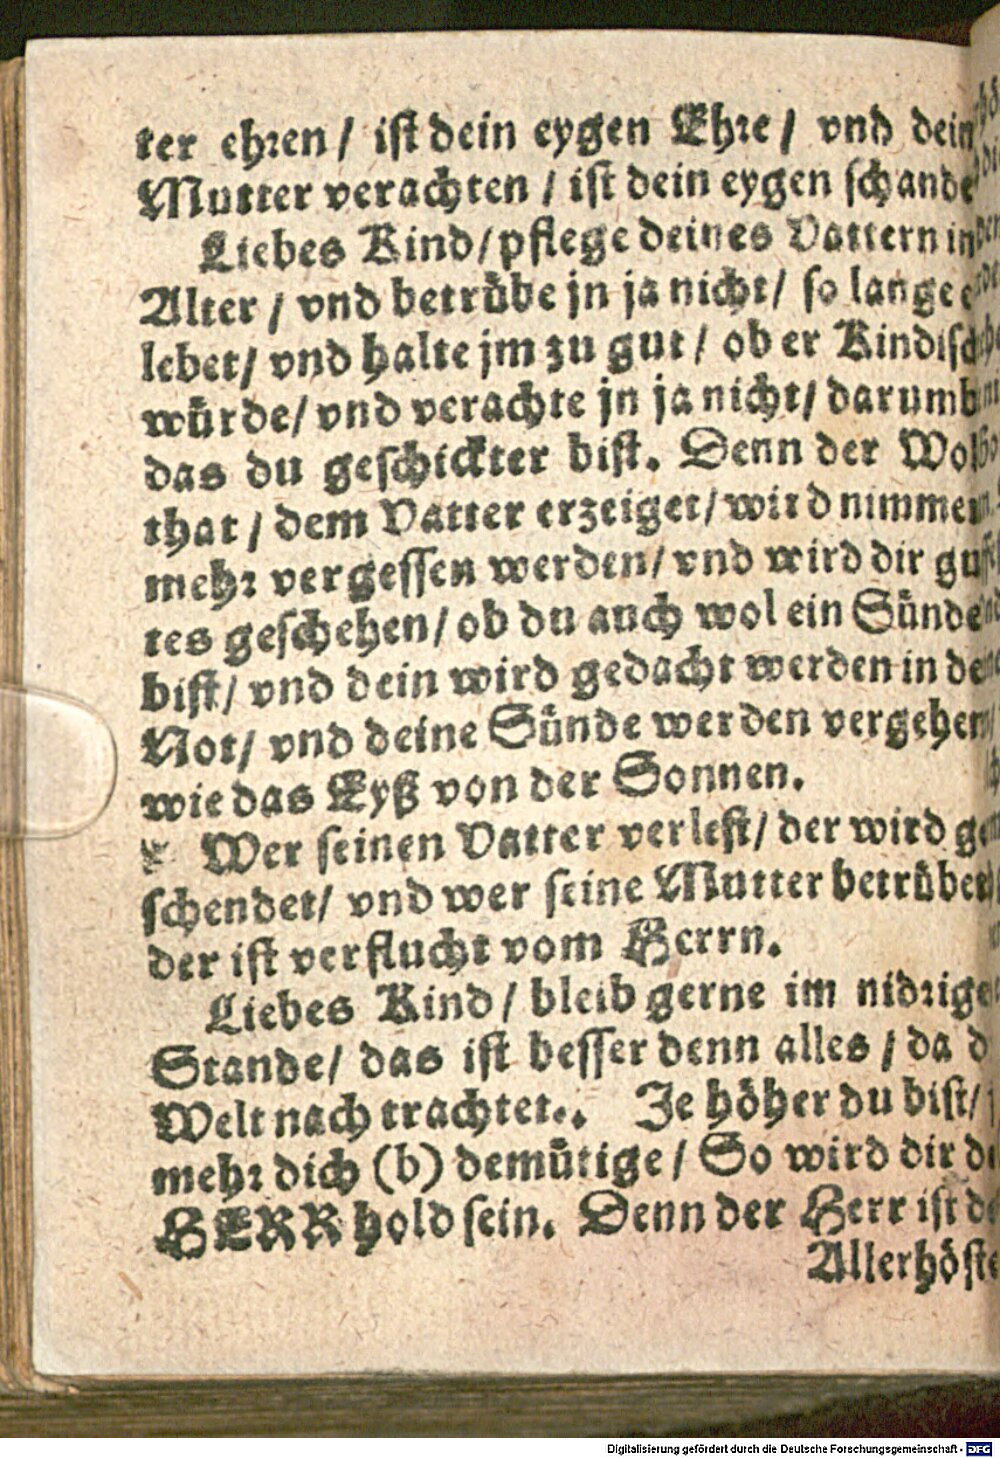 ter ehren / ist dein eygen Ehre / vnd dein
Mutter verachten / ist dein eygen schande
Liebes Kind / pflege deines Vattern in
Alter / vnd betrübe jn ja nicht / so lange e
lebet / vnd halte jm zu gut / ob er Kindisch
würde / vnd verachte jn ja nicht / darumb
das du geschickter bist. Denn der Wol
that / dem Vatter erzeiget / wird nimmer
mehr vergessen werden / vnd wird dir gu
tes geschehen / ob du auch wol ein Sünde
bist / vnd dein wird gedacht werden in de
Not / vnd deine Sünde werden vergehen
wie das Eyß von der Sonnen.
Wer seinen Vatter verlest / der wird ge
schendet / vnd wer seine Mutter betrübet
der ist verflucht vom Herrn.
Liebes Kind / bleib gerne im nidrige
Stande / das ist besser denn alles / da d
Welt nach trachtet.. Je höher du bist /
mehr dich (b) demütige / So wird dir de
HERR hold sein. Denn der Herr ist de
Allerhöste
Digitalisierung gefördert durch die Deutsche Forschungsgemeinschaft - DFG